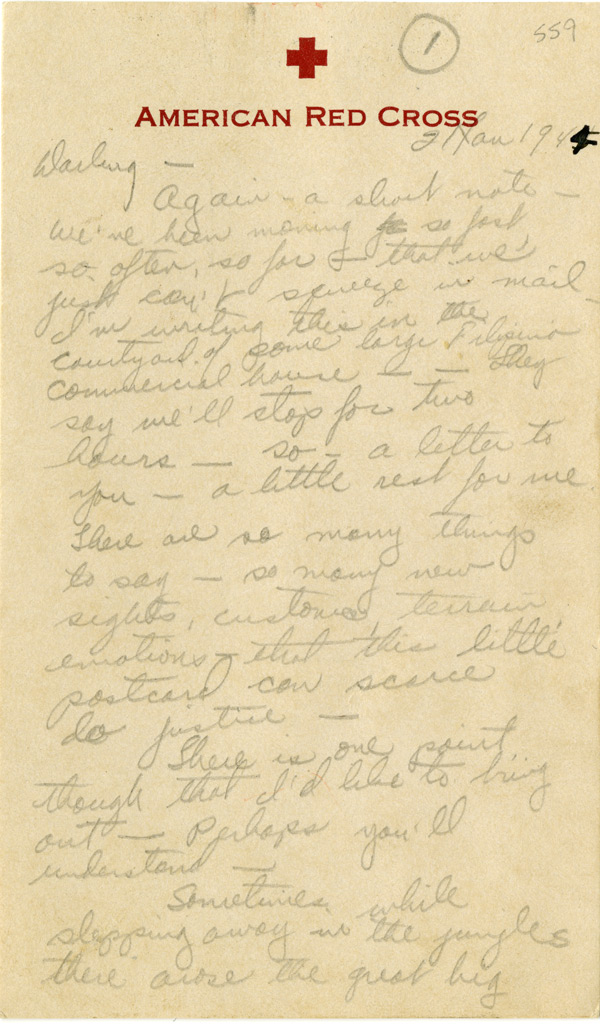 559
1
AMERICAN RED CROSS
2 Jan 194
Darling —
Again - a short note —
We've been moving so fast,
so often, so far — that we
just can't squeeze in mail —
I'm writing this in the
courtyard of some large Filipino
commercial house — — They
say we'll stop for two
hours — so — a letter to
you — a little rest for me.
There are so many things
to say — so many new
sights, customs, terrain,
emotions — that this little
postcard can scarce
do justice —
There is one point
though that I'd like to bring
out — Perhaps you'll
understand —
Sometimes, while
slopping away in the jungles
there arose the great big